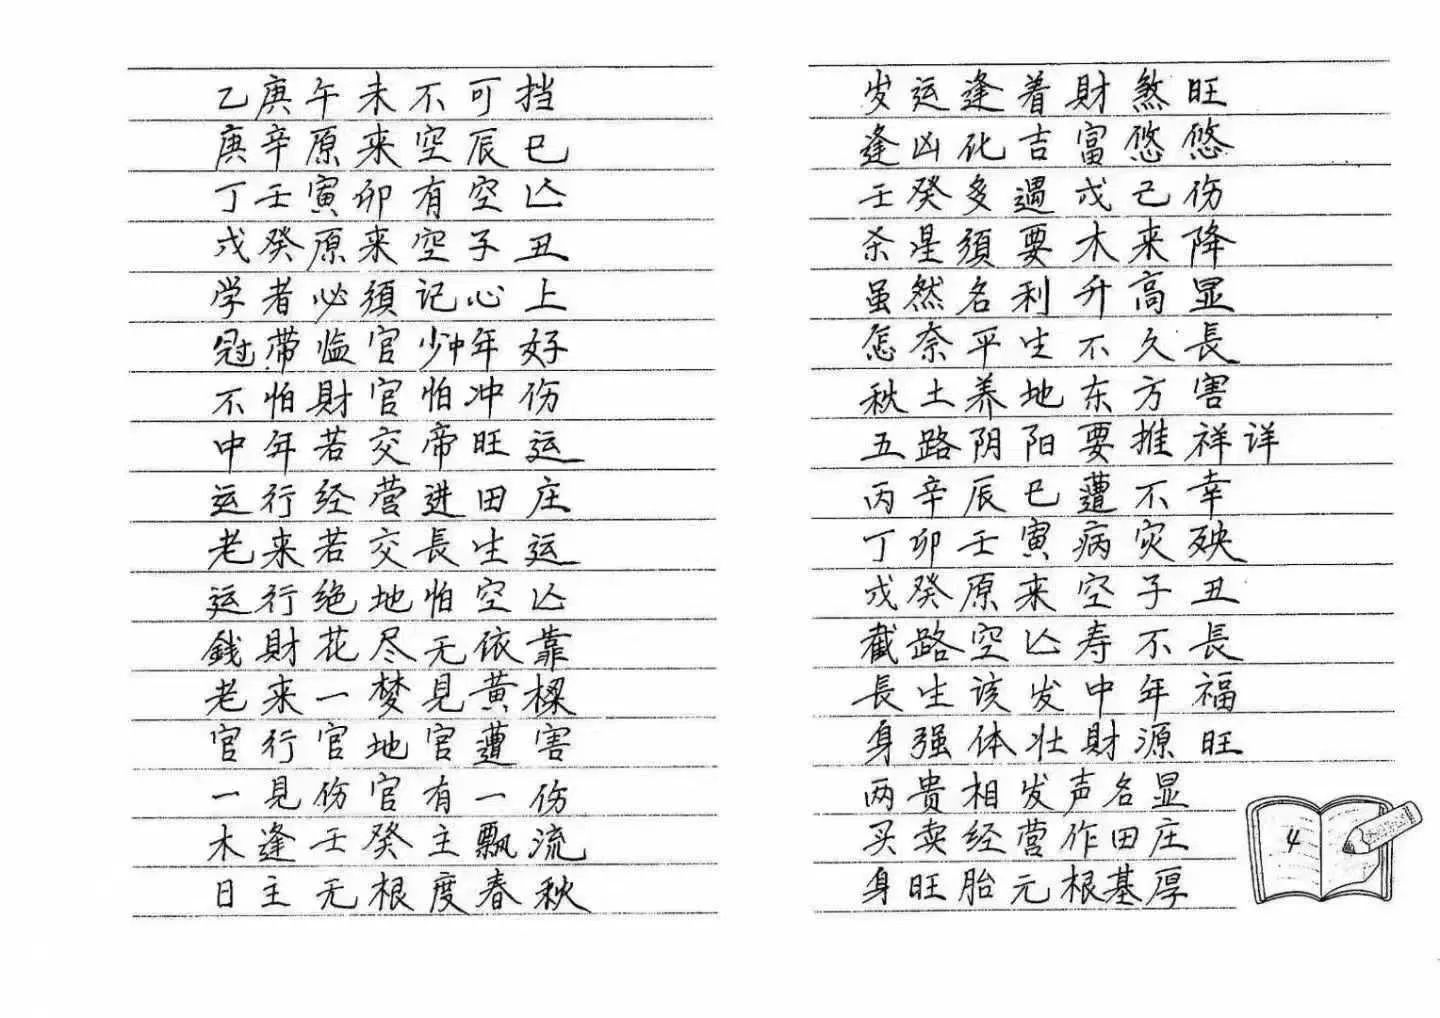 乙庚午未不可挡
庚辛原来空辰巳
丁壬寅卯有空亾
戊癸原来空子丑
学者必須记心上
冠带临官少年好
不怕財官怕冲伤
中年若交帝旺运
运行经营进田庄
老来若交長生运
运行绝地怕空亾
銭財花尽无依靠
老来一梦見黄樑
官行官地官遭害
一見伤官有一伤
木逢壬癸主飘流
日主无根度春秋
发运逢着財煞旺
逢凶化吉富悠悠
壬癸多遇戊己伤
杀星須要木来降
虽然名利升高显
怎奈平生不久長
秋土养地东方害
五路阴阳要推祥详
丙辛辰巳遭不幸
丁卯壬寅病灾殃
戊癸原来空子丑
截路空亾寿不長
長生该发中年福
身强体壮財源旺
两贵相发声名显
买卖经营作田庄
身旺胎元根基厚
4